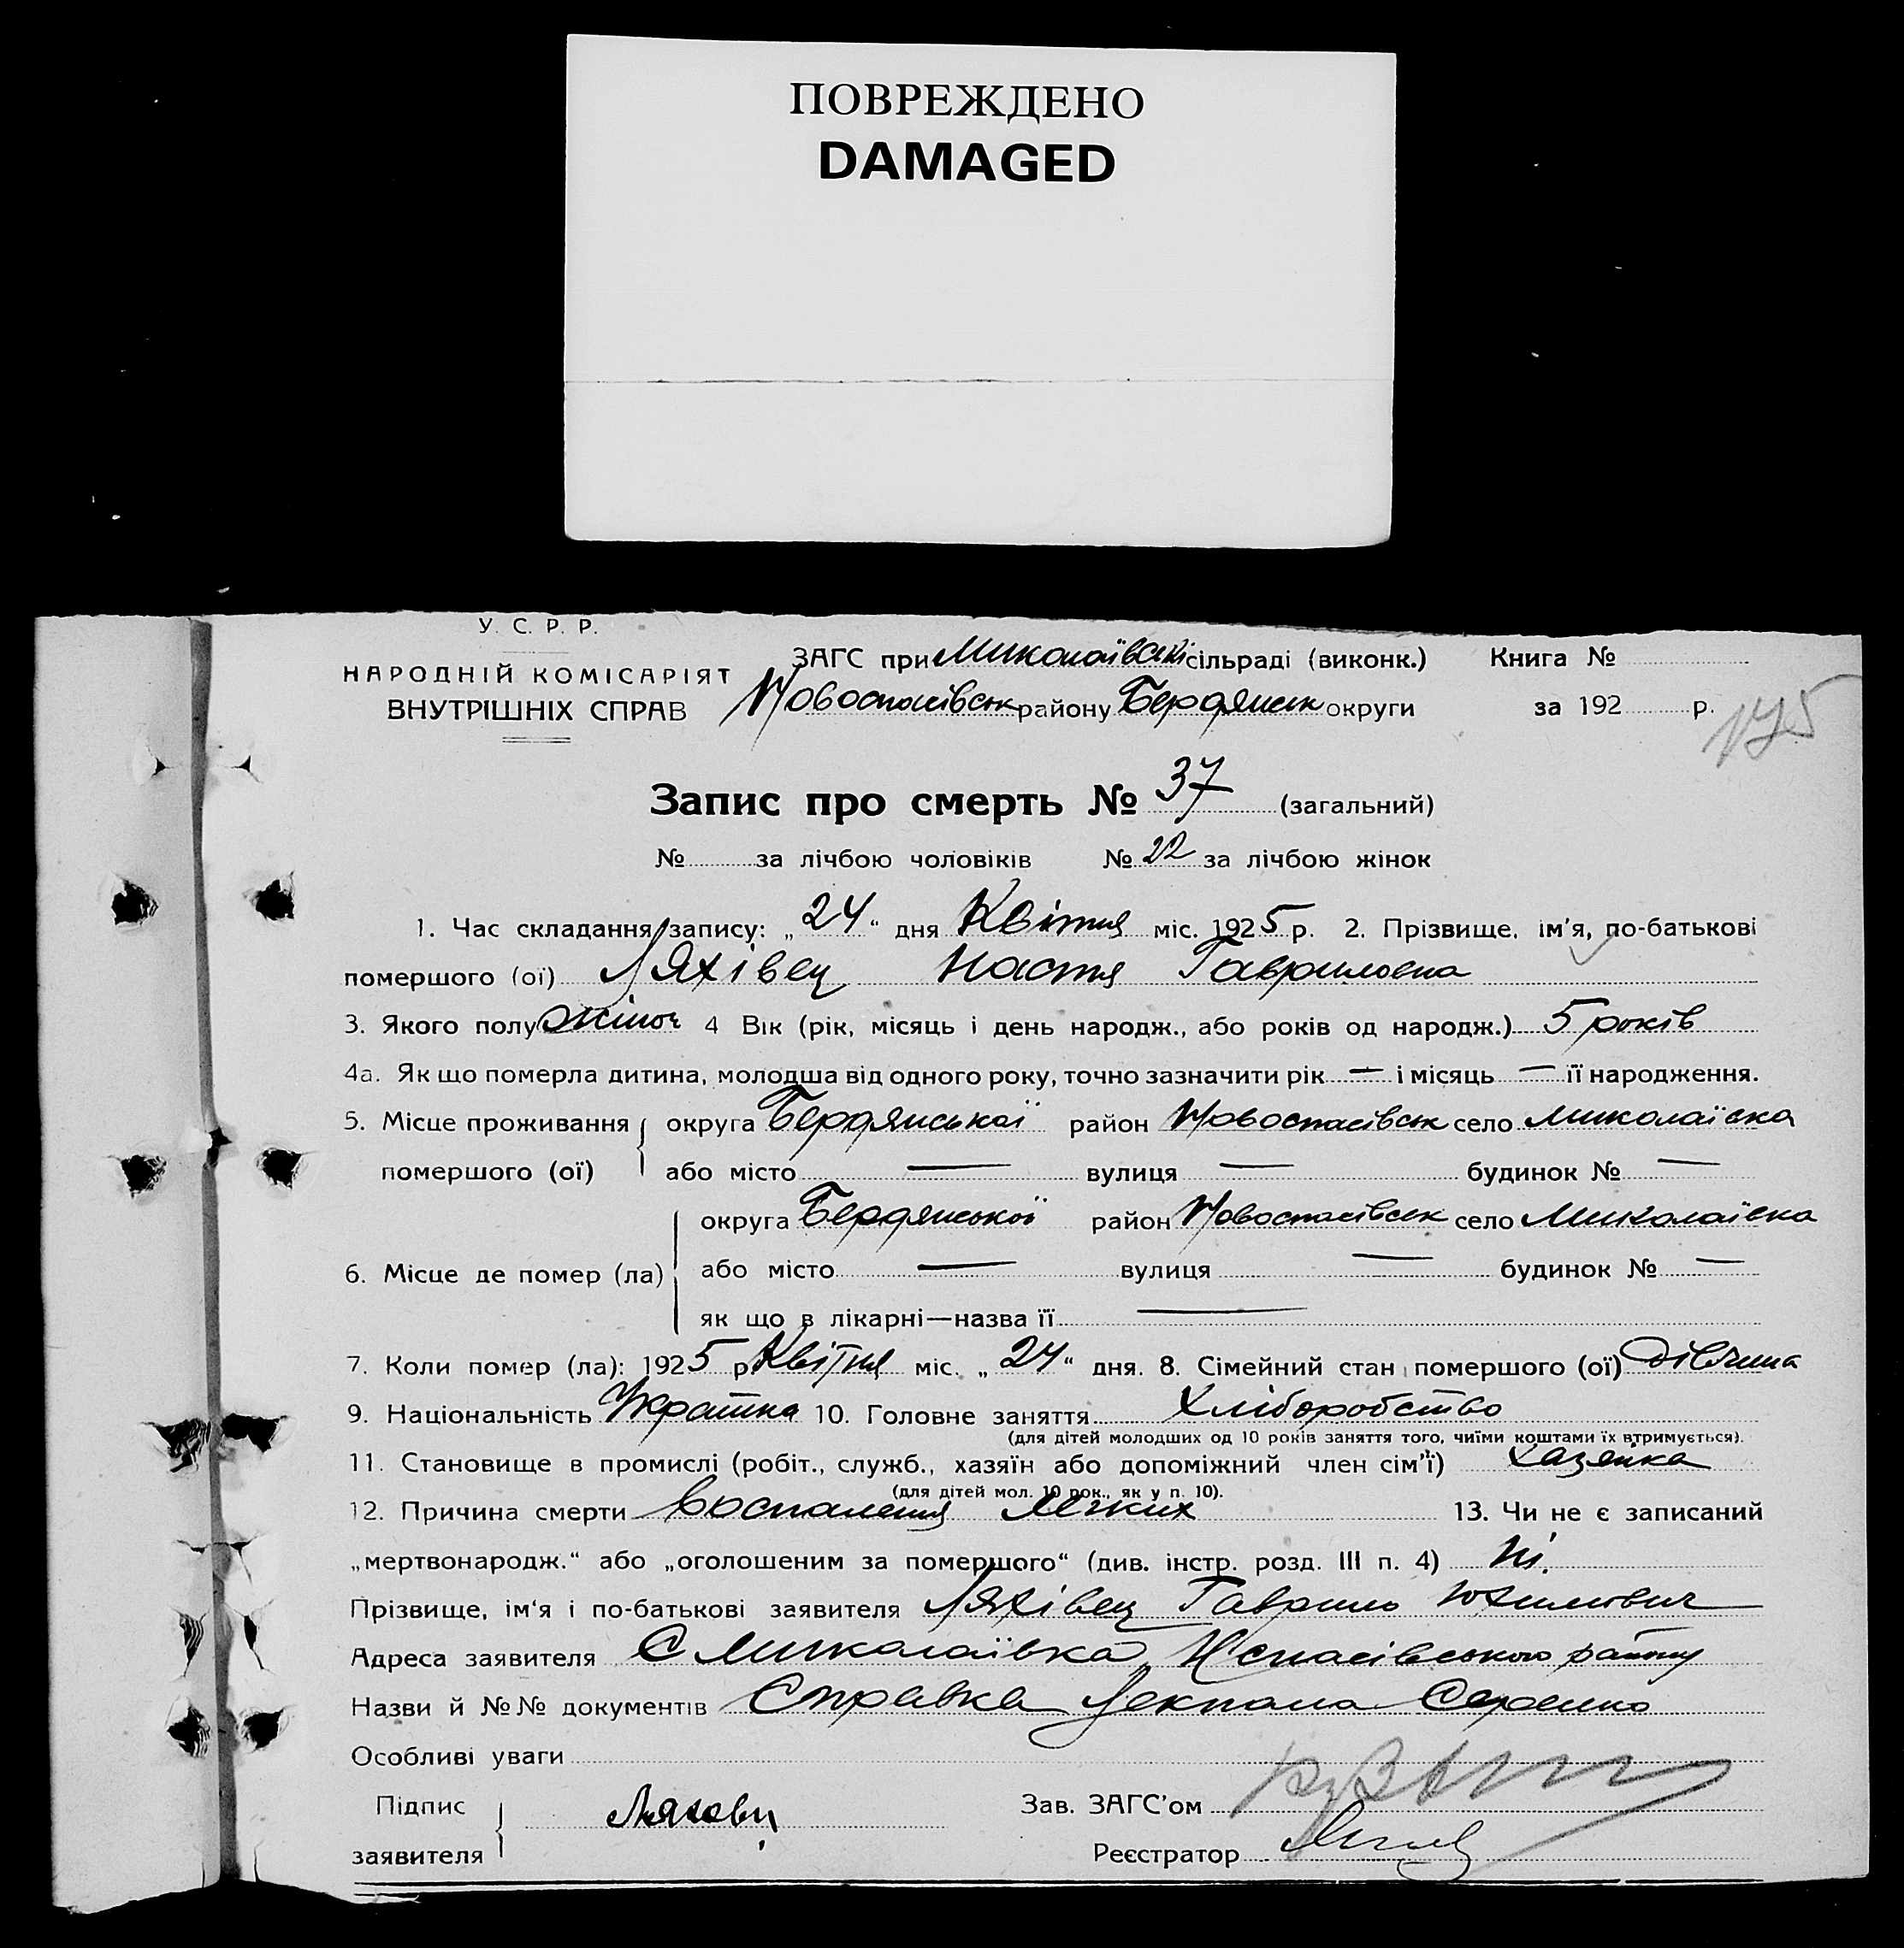 ПОВРЕЖДЕНО
DAMAGED
У. С. Р. Р.
НАРОДНІЙ КОМІСАРІЯТ
ВНУТРІШНІХ СПРАВ
ЗАГС при Миколаївскі сільраді (виконк.) Книга №
Новоспасівськ району Бердянськ округи за 192 р.
175
Запис про смерть № 37 (загальний)
№ за лічбою чоловіків № 22 за лічбою жінок
1. Час складання запису: „24“ дня Квітня міс. 1925 р. 2. Прізвище, ім'я, по-батькові
помершого (ої) Ляхівец Настя Гавриловна
3. Якого полу жіноч 4 Вік (рік, місяць і день народж., або років од народж.) 5 років
4а. Як що померла дитина, молодша від одного року, точно зазначити рік — і місяць — її народження.
5. Місце проживання округа Бердянської район Новоспасівськ село Миколаївка
помершого (ої) або місто — вулиця — будинок № —
округа Бердянської район Новоспасівськ село Миколаївка
6. Місце де помер (ла) або місто — вулиця — будинок № —
як що в лікарні—назва її —
7. Коли помер (ла): 1925 р. Квітня міс. „24“ дня. 8. Сімейний стан помершого (ої) дівчина
9. Національність Українка 10. Головне заняття Хліборобство
(для дітей молодших од 10 років заняття того, чиїми коштами їх втримується).
11. Становище в промислі (робіт., служб., хазяїн або допоміжний член сім'ї) Хазяйка
(для дітей мол. 10 рок., як у п. 10).
12. Причина смерти Воспаления легких 13. Чи не є записаний
„мертвонародж.“ або „оголошеним за помершого“ (див. інстр. розд. III п. 4) Ні.
Прізвище, ім'я і по-батькові заявителя Ляхівец Гаврило Юхимович
Адреса заявителя С Миколаївка Нспасівського району
Назви й №№ документів Справка Лекпома
Особливі уваги
Підпис Зав. ЗАГС'ом
заявителя Ляховец Реєстратор